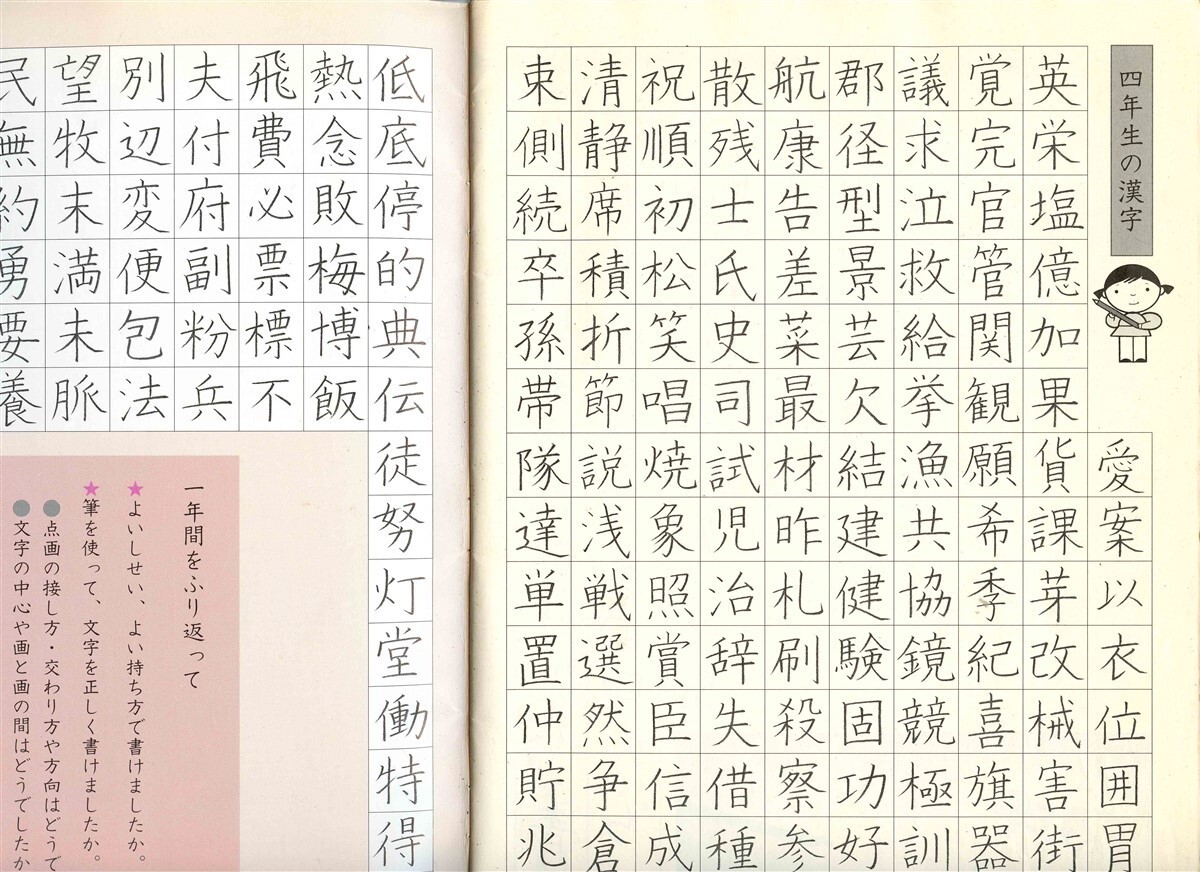 四年生の漢字
愛案以衣位囲胃
英栄塩億加果貨課芽改械害街
覚完官管関観願希季紀喜旗器
議求泣救給挙漁共協鏡競極訓
郡径型景芸欠結建健験固功好
航康告差菜最材昨札刷殺察参
散残士氏史司試児治辞失借種
祝順初松笑唱焼象照賞臣信成
清静席積折節説浅戦選然争倉
束側続卒孫帯隊達単置仲貯兆
低底停的典伝徒努灯堂働特得
熱念敗梅博飯
飛費必票標不
夫付府副粉兵
別辺変便包法
望牧末満未脈
民無約勇要養
一年間をふり返って
★よいしせい、よい持ち方で書けましたか。
★筆を使って、文字を正しく書けましたか。
●点画の接し方・交わり方や方向はどうで
●文字の中心や画と画の間はどうでしたか